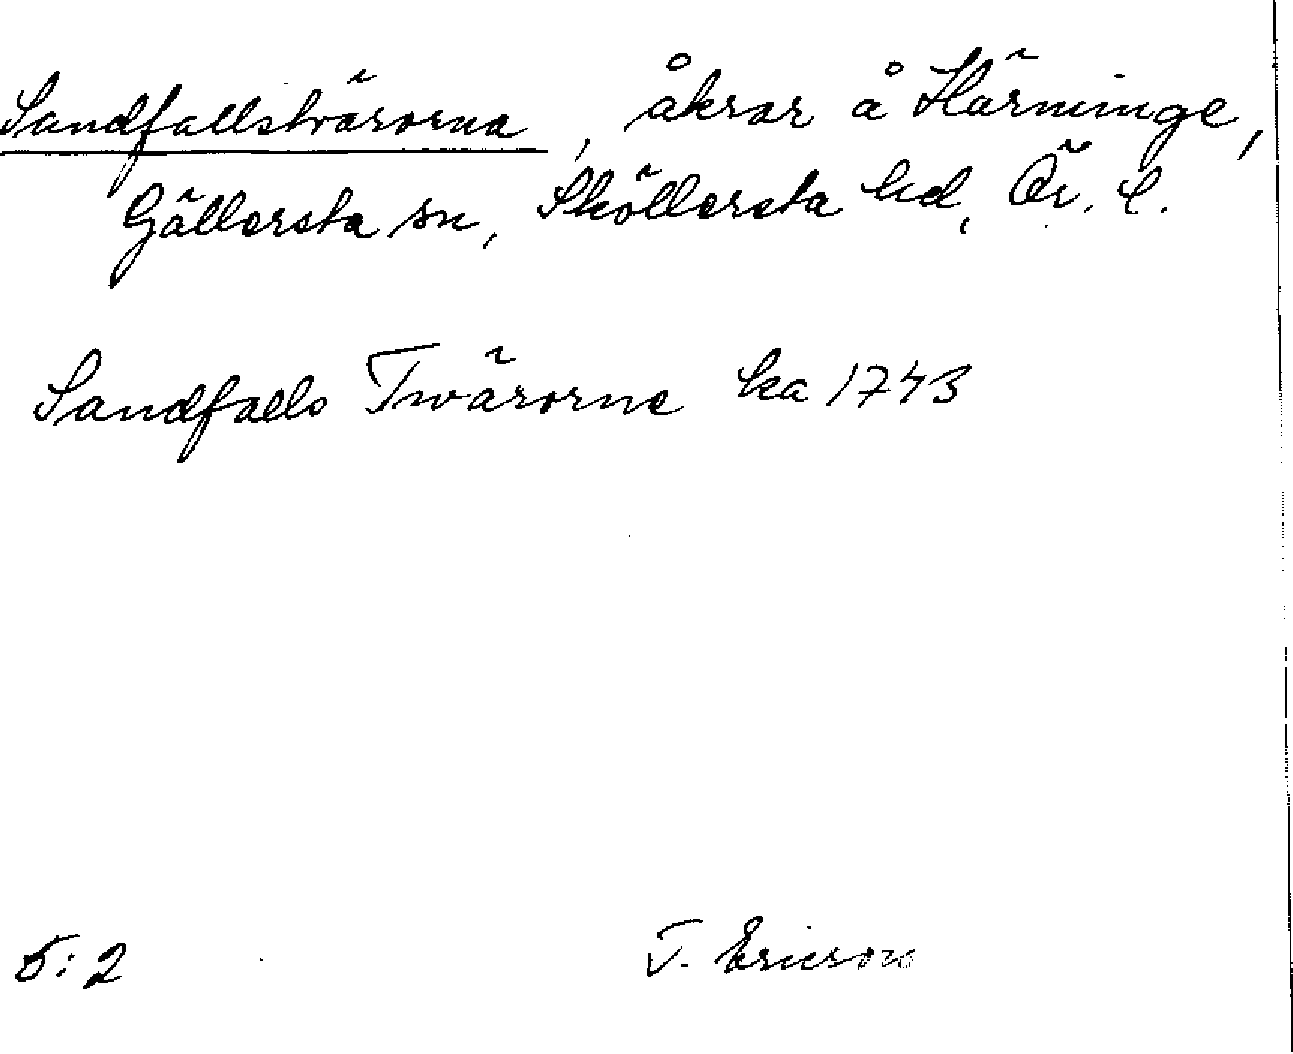 Sandfallstvärorna, åkrar å Härminge,
Gällersta sn, Sköllersta hd, Ör. l.
Sandfalls Twärorne ka 1743
5:2 T. Ericson